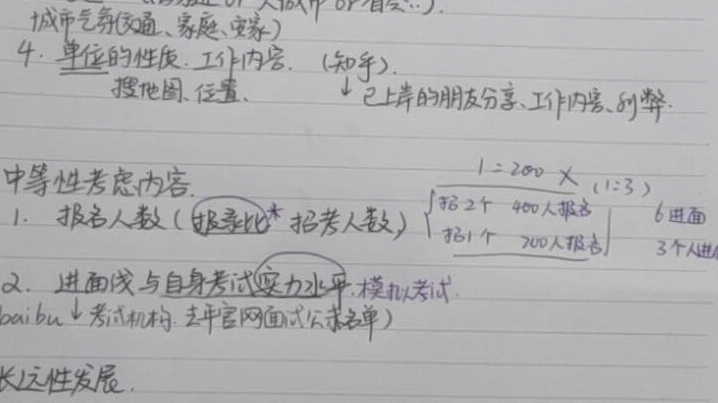 城市气氛(交通、家庭、安家)
4. 单位的性质. 工作内容. (知乎).
搜地图、位置、 ↓ 已上岸的朋友分享、工作内容、利弊.
中等性考虑内容.
1. 报名人数(报录比* 招考人数)
1=200 × (1:3)
招2个 400人报名 6进面
招1个 200人报名 3个人进
2. 进面线与自身考试实力水平.模拟考试.
baibu ↓ 考试机构. 去年官网面试公示名单)
长远性发展.